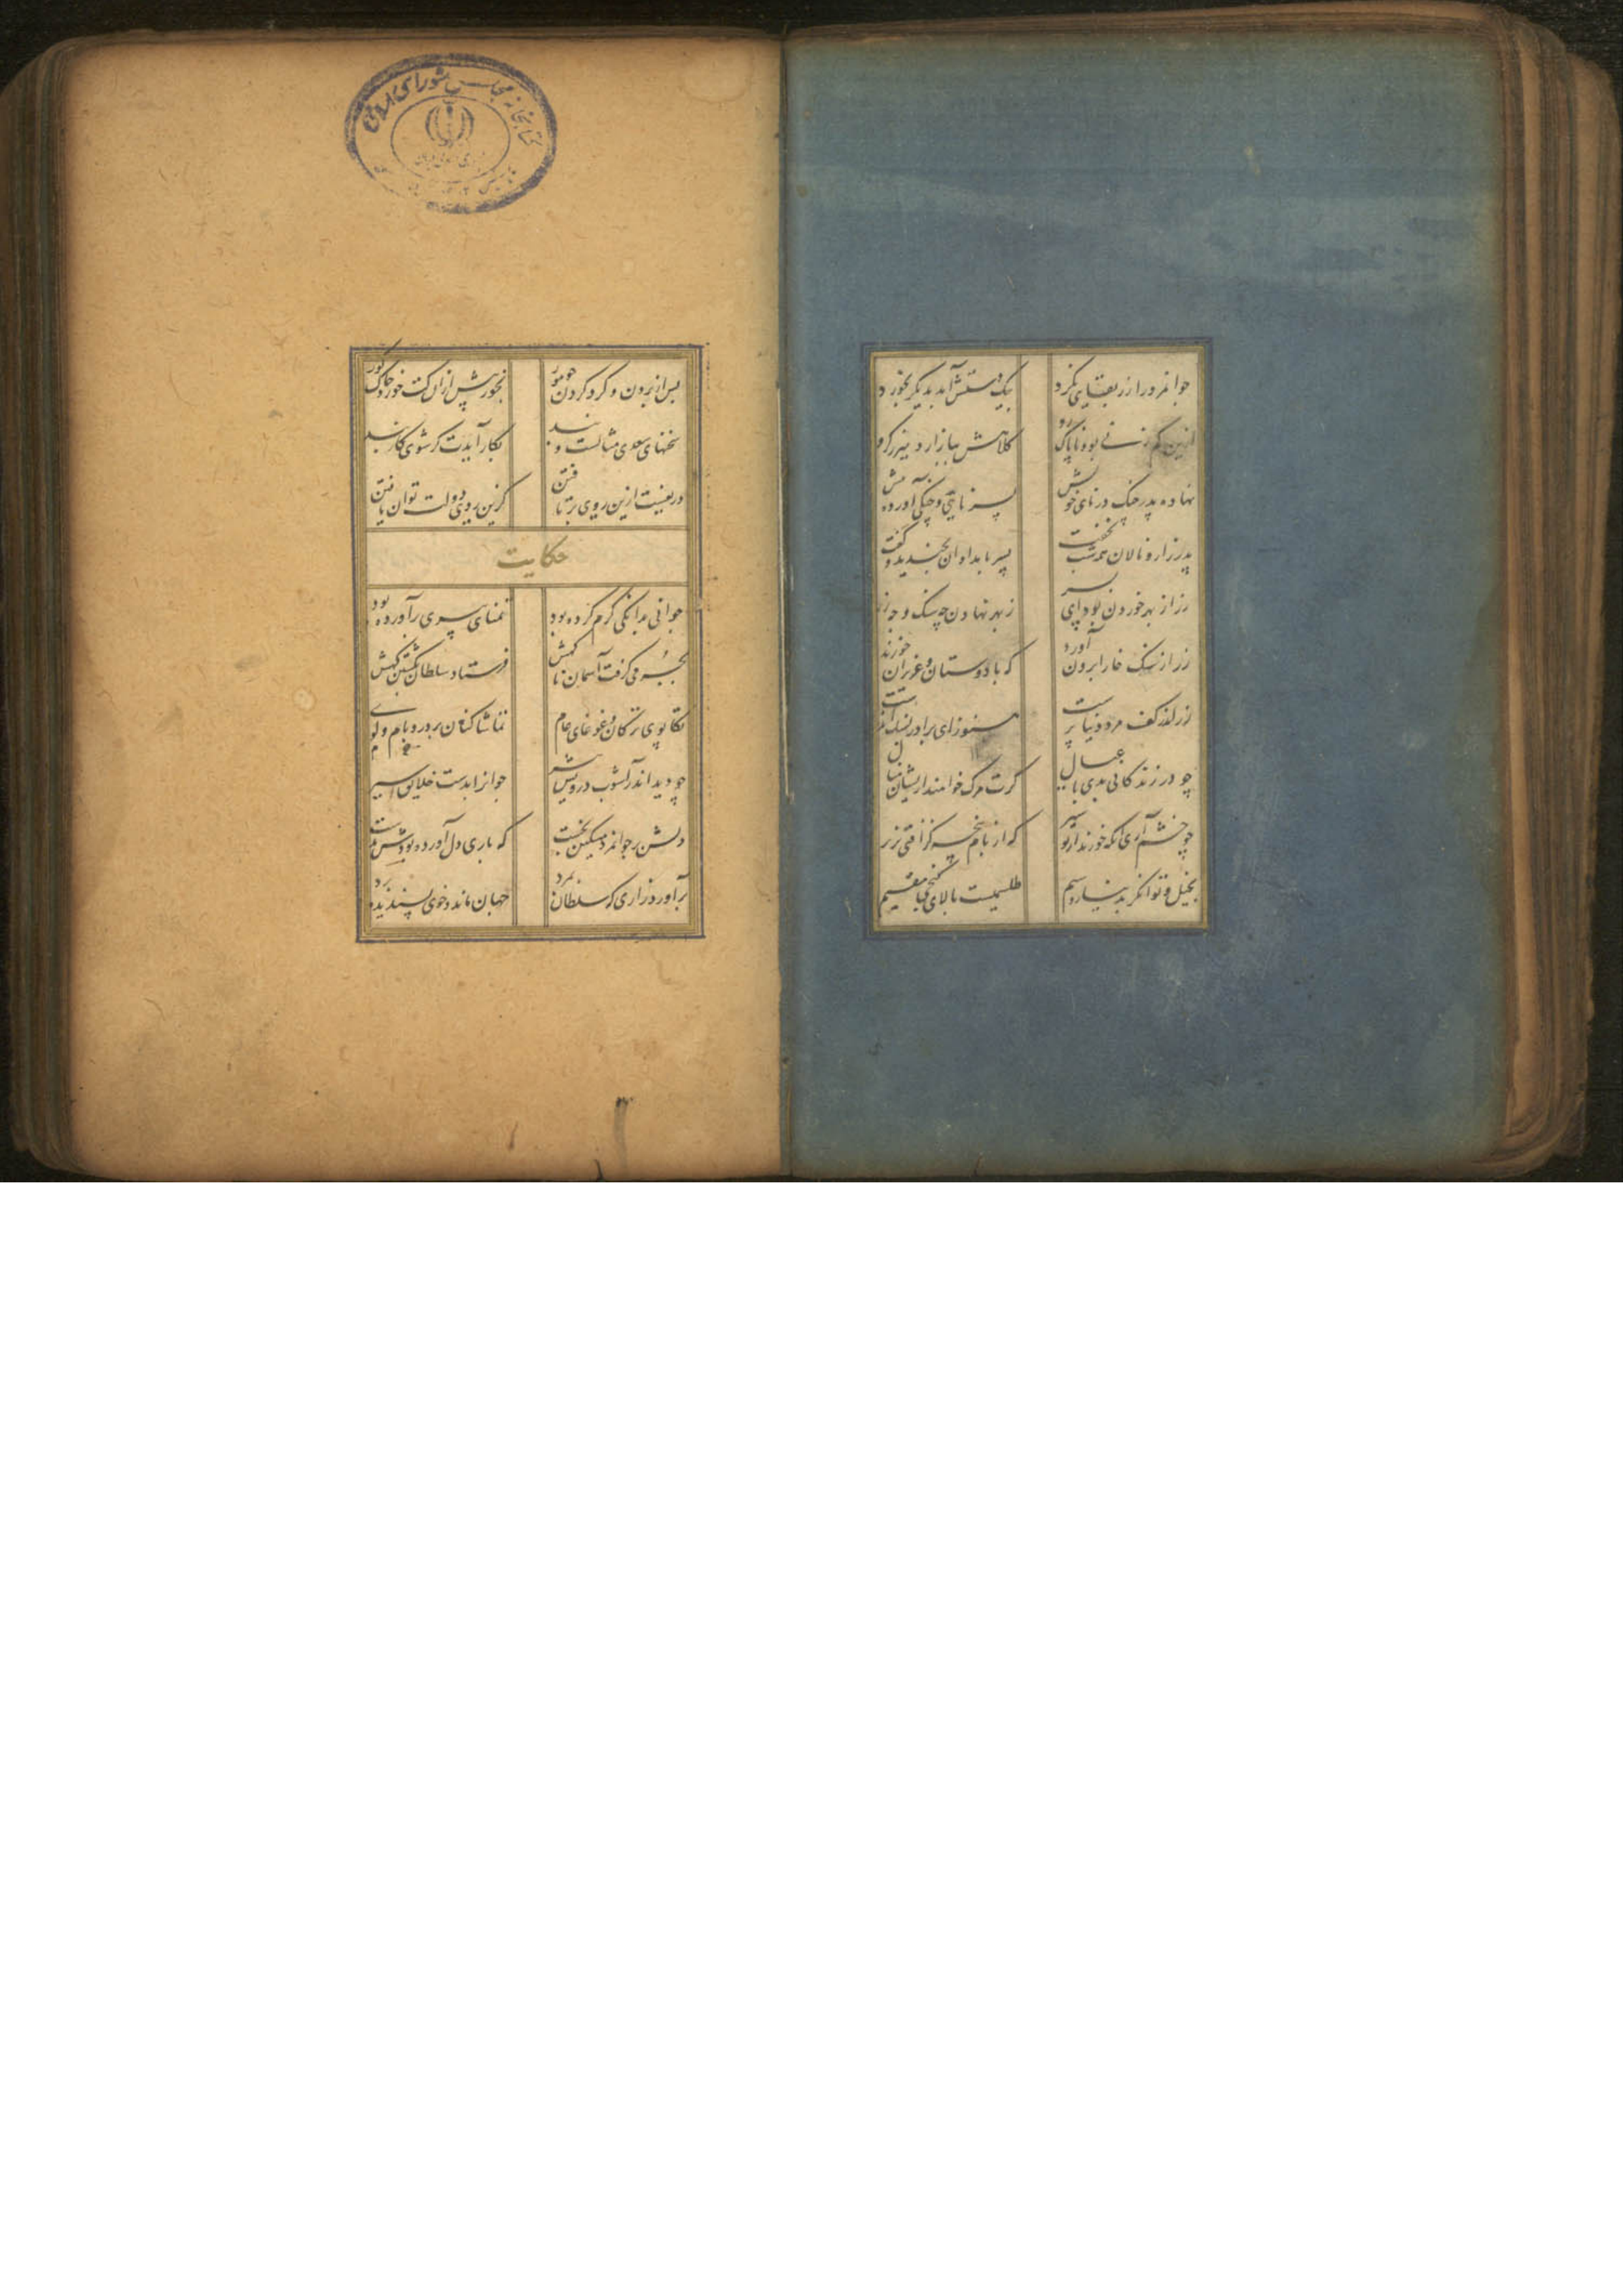 جوانمرد را زر بقایی نکرد
بیک دستش آمد بدیگر بخورد
ازین کم زنی بود ناپاک رو
کلاهش ببازار و میزر گرو
نهاده پدر چنگ در نای خویش
پسر نایی و چنگی آورده پیش
پدر زار و نالان همه شب نخفت
پسر بامدادان بخندید و گفت
زر از بهر خوردن بود ای پسر
ز بهر نهادن چه سنگ و چه زر
زر از سنگ خارا برون آورد
که با دوستان و عزیران خورند
زر اندر کف مرد دنیا پرست
هنوز ای برادر بسنگ اندرست
چو در زندگانی بدی با عیال
کرت مرک خواهند ازیشان منال
چو خشم آری انگه خورند از تو سیر
که از بام پنجه گز افتی بزیر
بخیل و توانگر بدینار و سیم
طلسمیست بالای گنجی مقیم
پس از بردن و گرد کردن چو مور
بخور پیش از ان کت خورد کرم گور
سخنهای سعدی مثالست و پند
بکار آیدت گر شوی کاربند
دریغست ازین روی برتافتن
کزین روی دولت توان یافتن
حکایت
جوانی بدانگی کرم کرده بود
تمنای پیری برآورده بود
بجرمی گرفت آسمان ناگهش
فرستاد سلطان بکشتن گهش
تکاپوی ترکان و غوغای عام
تماشاکنان بر در و بام و کوی
چو دید اندر آشوب درویش پیر
جوانرا بدست خلایق اسیر
دلش بر جوانمرد مسکین بخست
که باری دل آورده بودش بدست
برآورد زاری که سلطان بمرد
جهان ماند و خوی پسندیده برد
کتابخانه مجلس شورای